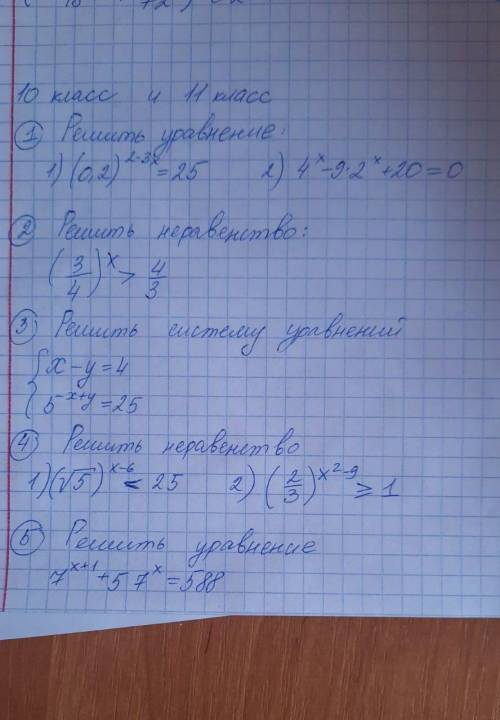 10 класс и 11 класс
① Решить уравнение:
1) (0,2)^{2-3x} = 25 2) 4^x - 9·2^x + 20 = 0
② Решить неравенство:
(3/4)^x > 4/3
③ Решить систему уравнений
{ x - y = 4
5^{-x+y} = 25
④ Решить неравенство
1) (√5)^{x-6} < 25 2) (2/3)^{x²-9} ≥ 1
⑤ Решить уравнение
7^{x+1} + 5 7^x = 588